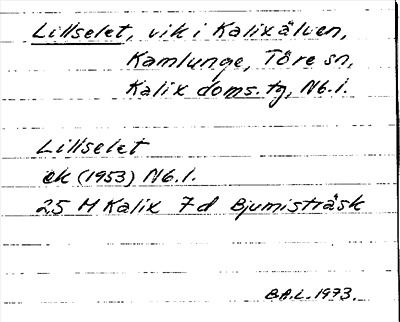 Lillselet, vik i Kalixälven,
Kamlunge, Töre sn,
Kalix doms. tg, Nb.l.
Lillselet
ek (1953) Nb.l.
25 M Kalix 7 d Bjumisträsk
B.A.L. 1973.